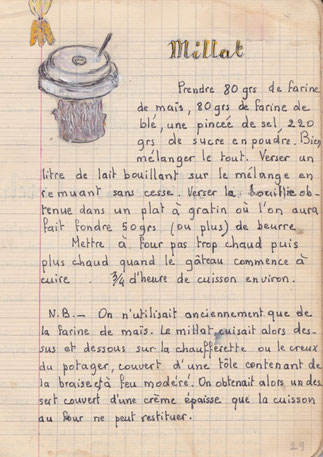 Millat
Prendre 80 grs de farine
de maïs, 80 grs de farine de
blé, une pincée de sel, 220
grs de sucre en poudre. Bien
mélanger le tout. Verser un
litre de lait bouillant sur le mélange en
remuant sans cesse. Verser la bouillie ob-
tenue dans un plat à gratin où l'on aura
fait fondre 50 grs (ou plus) de beurre
Mettre à four pas trop chaud puis
plus chaud quand le gâteau commence à
cuire. 3/4 d'heure de cuisson environ.
N.B.- On n'utilisait anciennement que de
la farine de maïs. Le millat cuisait alors des-
sus et dessous sur la chaufferette ou le creux
du potager, couvert d'une tôle contenant de
la braise, à feu modéré. On obtenait alors un des
sert couvert d'une crème épaisse que la cuisson
au four ne peut restituer.
29